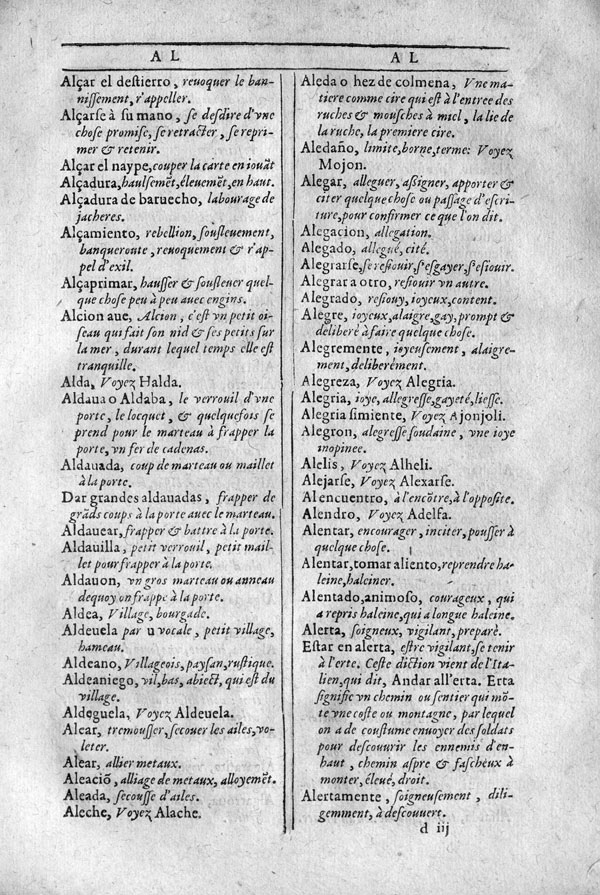 A L
Alçar el destierro, reuoquer le ban-
nissement, r'appeller.
Alçarse à su mano, se desdire d'vne
chose promise, se retracter, se repri-
mer & retenir.
Alçar el naype, couper la carte en iouãt
Alçadura, haulsemẽt, éleuemẽt, en haut.
Alçadura de baruecho, labourage de
jacheres.
Alçamiento, rebellion, sousleuement,
banqueroute, reuoquement & r'ap-
pel d'exil.
Alçaprimar, hausser & souslever quel-
que chose peu à peu auec engins.
Alcion aue, Alcion, c'est vn petit oi-
seau qui fait son nid & ses petits sur
la mer, durant lequel temps elle est
tranquille.
Alda, Voyez Halda.
Aldaua o Aldaba, le verrouil d'vne
porte, le locquet, & quelquefois se
prend pour le marteau à frapper la
porte, vn fer de cadenas.
Aldauada, coup de marteau ou maillet
à la porte.
Dar grandes aldauadas, frapper de
grãds coups à la porte auec le marteau.
Aldauear, frapper & battre à la porte.
Aldauilla, petit verrouil, petit mail-
let pour frapper à la porte.
Aldauon, vn gros marteau ou anneau
dequoy on frappe à la porte.
Aldea, Village, bourgade.
Aldeuela par u vocale, petit village,
hameau.
Aldeano, Villageois, paysan, rustique.
Aldeaniego, vil, bas, abiect, qui est du
village.
Aldeguela, Voyez Aldeuela.
Alear, tremousser, secouer les ailes, vo-
leter.
Alear, allier metaux.
Aleaciõ, alliage de metaux, alloyemẽt.
Aleada, secousse d'ailes.
Aleche, Voyez Alache.
A L
Aleda o hez de colmena, Vne ma-
tiere comme cire qui est à l'entree des
ruches & mousches à miel, la lie de
la ruche, la premiere cire.
Aledaño, limite, borne, terme: Voyez
Mojon.
Alegar, alleguer, assigner, apporter &
citer quelque chose ou passage d'escri-
ture, pour confirmer ce que l'on dit.
Alegacion, allegation.
Alegado, allegué, cité.
Alegrarse, se resiouir, s'esgayer, s'esiouir.
Alegrar a otro, resiouir vn autre.
Alegrado, resiouy, ioyeux, content.
Alegre, ioyeux, alaigre, gay, prompt &
deliberé à faire quelque chose.
Alegremente, ioyeusement, alaigre-
ment, deliberément.
Alegreza, Voyez Alegria.
Alegria, ioye, allegresse, gayeté, liesse.
Alegria simiente, Voyez Ajonjoli.
Alegron, alegresse soudaine, vne ioye
inopinee.
Alelis, Voyez Alheli.
Alejarse, Voyez Alexarse.
Al encuentro, à l'encõtre, à l'opposite.
Alendro, Voyez Adelfa.
Alentar, encourager, inciter, pousser à
quelque chose.
Alentar, tomar aliento, reprendre ha-
leine, haleiner.
Alentado, animoso, courageux, qui
a repris haleine, qui a longue haleine.
Alerta, soigneux, vigilant, preparé.
Estar en alerta, estre vigilant, se tenir
à l'erte. Ceste diction vient de l'Ita-
lien, qui dit, Andar all'erta. Erta
signifie vn chemin ou sentier qui mõ-
te vne coste ou montagne, par lequel
on a de coustume enuoyer des soldats
pour descouurir les ennemis d'en-
haut, chemin aspre & fascheux à
monter, éleué, droit.
Alertamente, soigneusement, dili-
gemment, à descouuert.
d iij